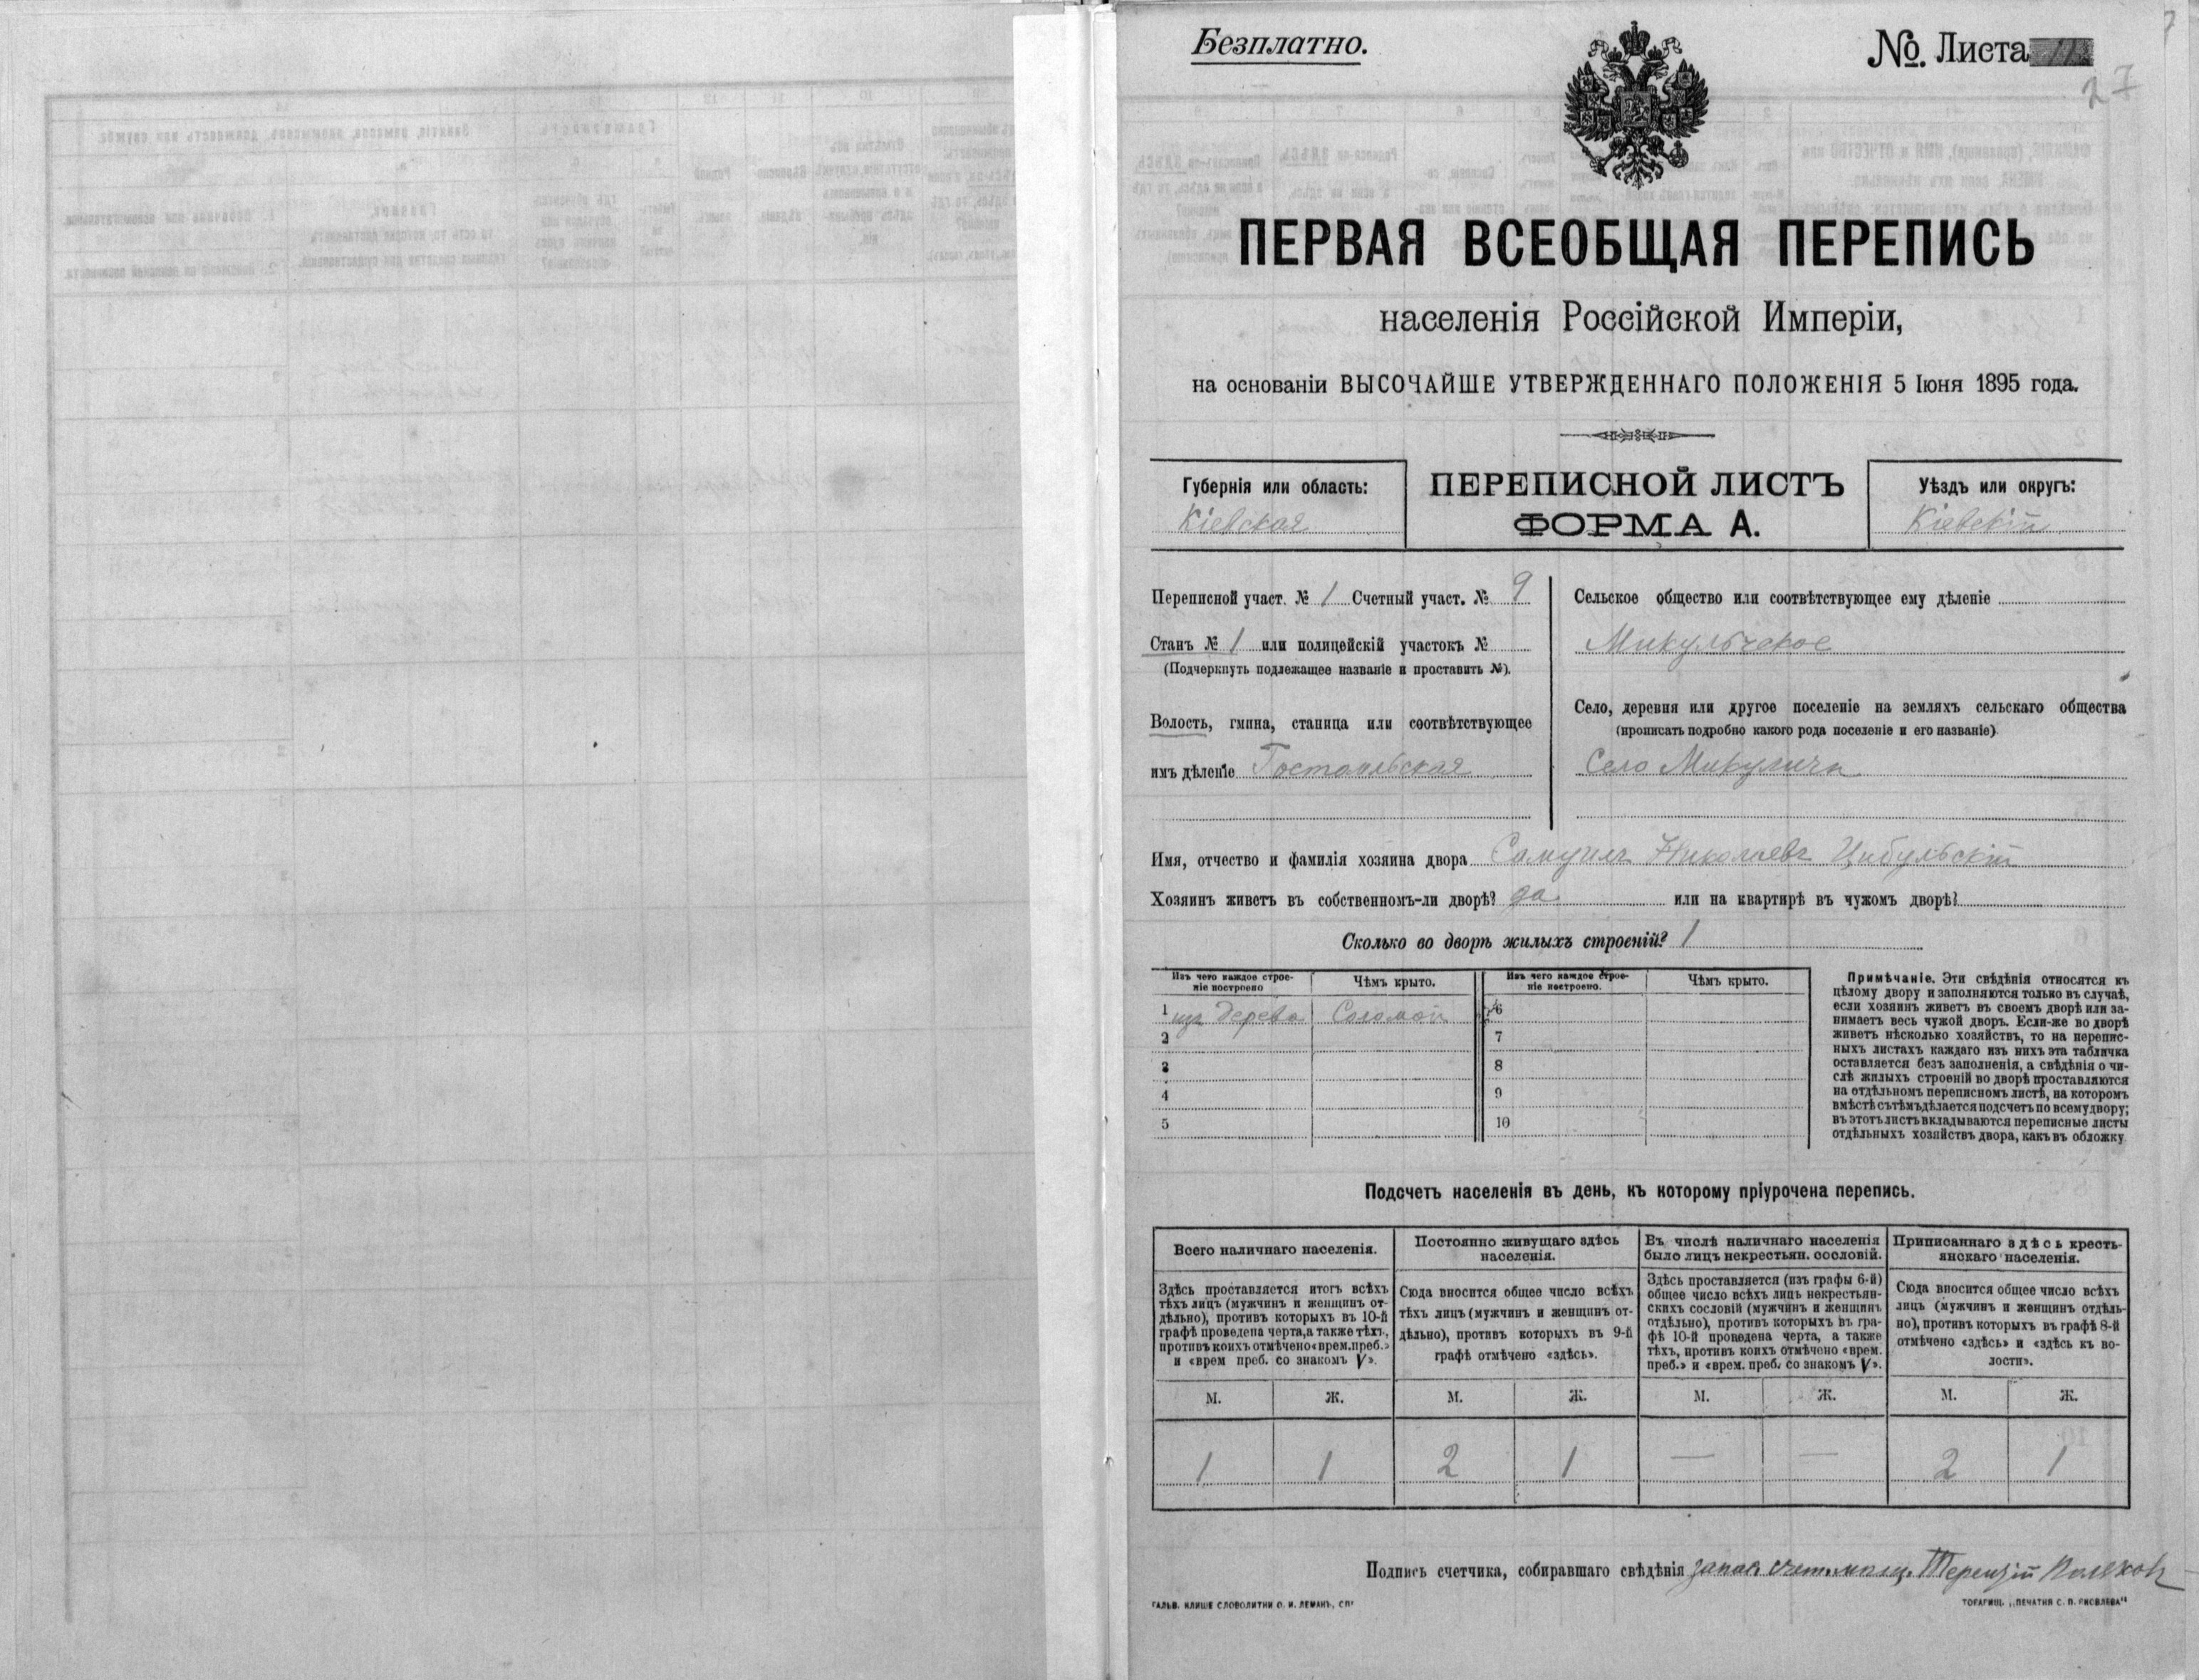 Безплатно.
№ Листа
27
ПЕРВАЯ ВСЕОБЩАЯ ПЕРЕПИСЬ
населенія Россійской Имперіи,
на основаніи ВЫСОЧАЙШЕ УТВЕРЖДЕННАГО ПОЛОЖЕНІЯ 5 Іюня 1895 года.
Губернія или область:
Кіевская
ПЕРЕПИСНОЙ ЛИСТЪ
ФОРМА А.
Уѣздъ или округъ:
Кіевскій
Переписной участ. № 1 Счетный участ. № 9
Станъ № 1 или полицейскій участокъ №
(Подчеркнуть подлежащее названіе и проставить №).
Волость, гмина, станица или соотвѣтствующее
имъ дѣленіе Гостомльская
Сельское общество или соотвѣтствующее ему дѣленіе
Микульчское
Село, деревня или другое поселеніе на земляхъ сельскаго общества
(прописать подробно какого рода поселеніе и его названіе)
Село Микуличи
Имя, отчество и фамилія хозяина двора Самуилъ Николаевъ Цибульскій
Хозяинъ живетъ въ собственномъ-ли дворѣ? да или на квартирѣ въ чужомъ дворѣ?
Сколько во дворѣ жилыхъ строеній? 1
Изъ чего каждое строе-
ніе построено
Чѣмъ крыто.
Изъ чего каждое строе-
ніе построено.
Чѣмъ крыто.
1 изъ дерева Соломой 6
2 7
3 8
4 9
5 10
Примѣчаніе. Эти свѣдѣнія относятся къ
цѣлому двору и заполняются только въ случаѣ,
если хозяинъ живетъ въ своемъ дворѣ или за-
нимаетъ весь чужой дворъ. Если-же во дворѣ
живетъ нѣсколько хозяйствъ, то на перепис-
ныхъ листахъ каждаго изъ нихъ эта табличка
оставляется безъ заполненія, а свѣдѣнія о чи-
слѣ жилыхъ строеній во дворѣ проставляются
на отдѣльномъ переписномъ листѣ, на которомъ
вмѣстѣ съ тѣмъ дѣлается подсчетъ по всему двору;
въ этотъ листъ вкладываются переписные листы
отдѣльныхъ хозяйствъ двора, какъ въ обложку
Подсчетъ населенія въ день, къ которому пріурочена перепись.
Всего наличнаго населенія.
Здѣсь проставляется итогъ всѣхъ
тѣхъ лицъ (мужчинъ и женщинъ от-
дѣльно), противъ которыхъ въ 10-й
графѣ проведена черта, а также тѣхъ,
противъ коихъ отмѣчено «врем. преб.»
и «врем преб. со знакомъ V».
Постоянно живущаго здѣсь
населенія.
Сюда вносится общее число всѣхъ
тѣхъ лицъ (мужчинъ и женщинъ от-
дѣльно), противъ которыхъ въ 9-й
графѣ отмѣчено «здѣсь».
Въ числѣ наличнаго населенія
было лицъ некрестьян. сословій.
Здѣсь проставляется (изъ графы 6-й)
общее число всѣхъ лицъ некрестьян-
скихъ сословій (мужчинъ и женщинъ
отдѣльно), противъ которыхъ въ гра-
фѣ 10-й проведена черта, а также
тѣхъ, противъ коихъ отмѣчено «врем.
преб.» и «врем. преб. со знакомъ V».
Приписаннаго здѣсь кресть-
янскаго населенія.
Сюда вносится общее число всѣхъ
лицъ (мужчинъ и женщинъ отдѣль-
но), противъ которыхъ въ графѣ 8-й
отмѣчено «здѣсь» и «здѣсь къ во-
лости».
М. Ж. М. Ж. М. Ж. М. Ж.
1 1 2 1 — — 2 1
Подпись счетчика, собиравшаго свѣдѣнія Терендій
ГАЛЬВ. КЛИШЕ СЛОВОЛИТНИ О. И. ЛЕМАНЪ, СПБ
ТОВАРИЩ. „ПЕЧАТНЯ С. П. ЯКОВЛЕВА"